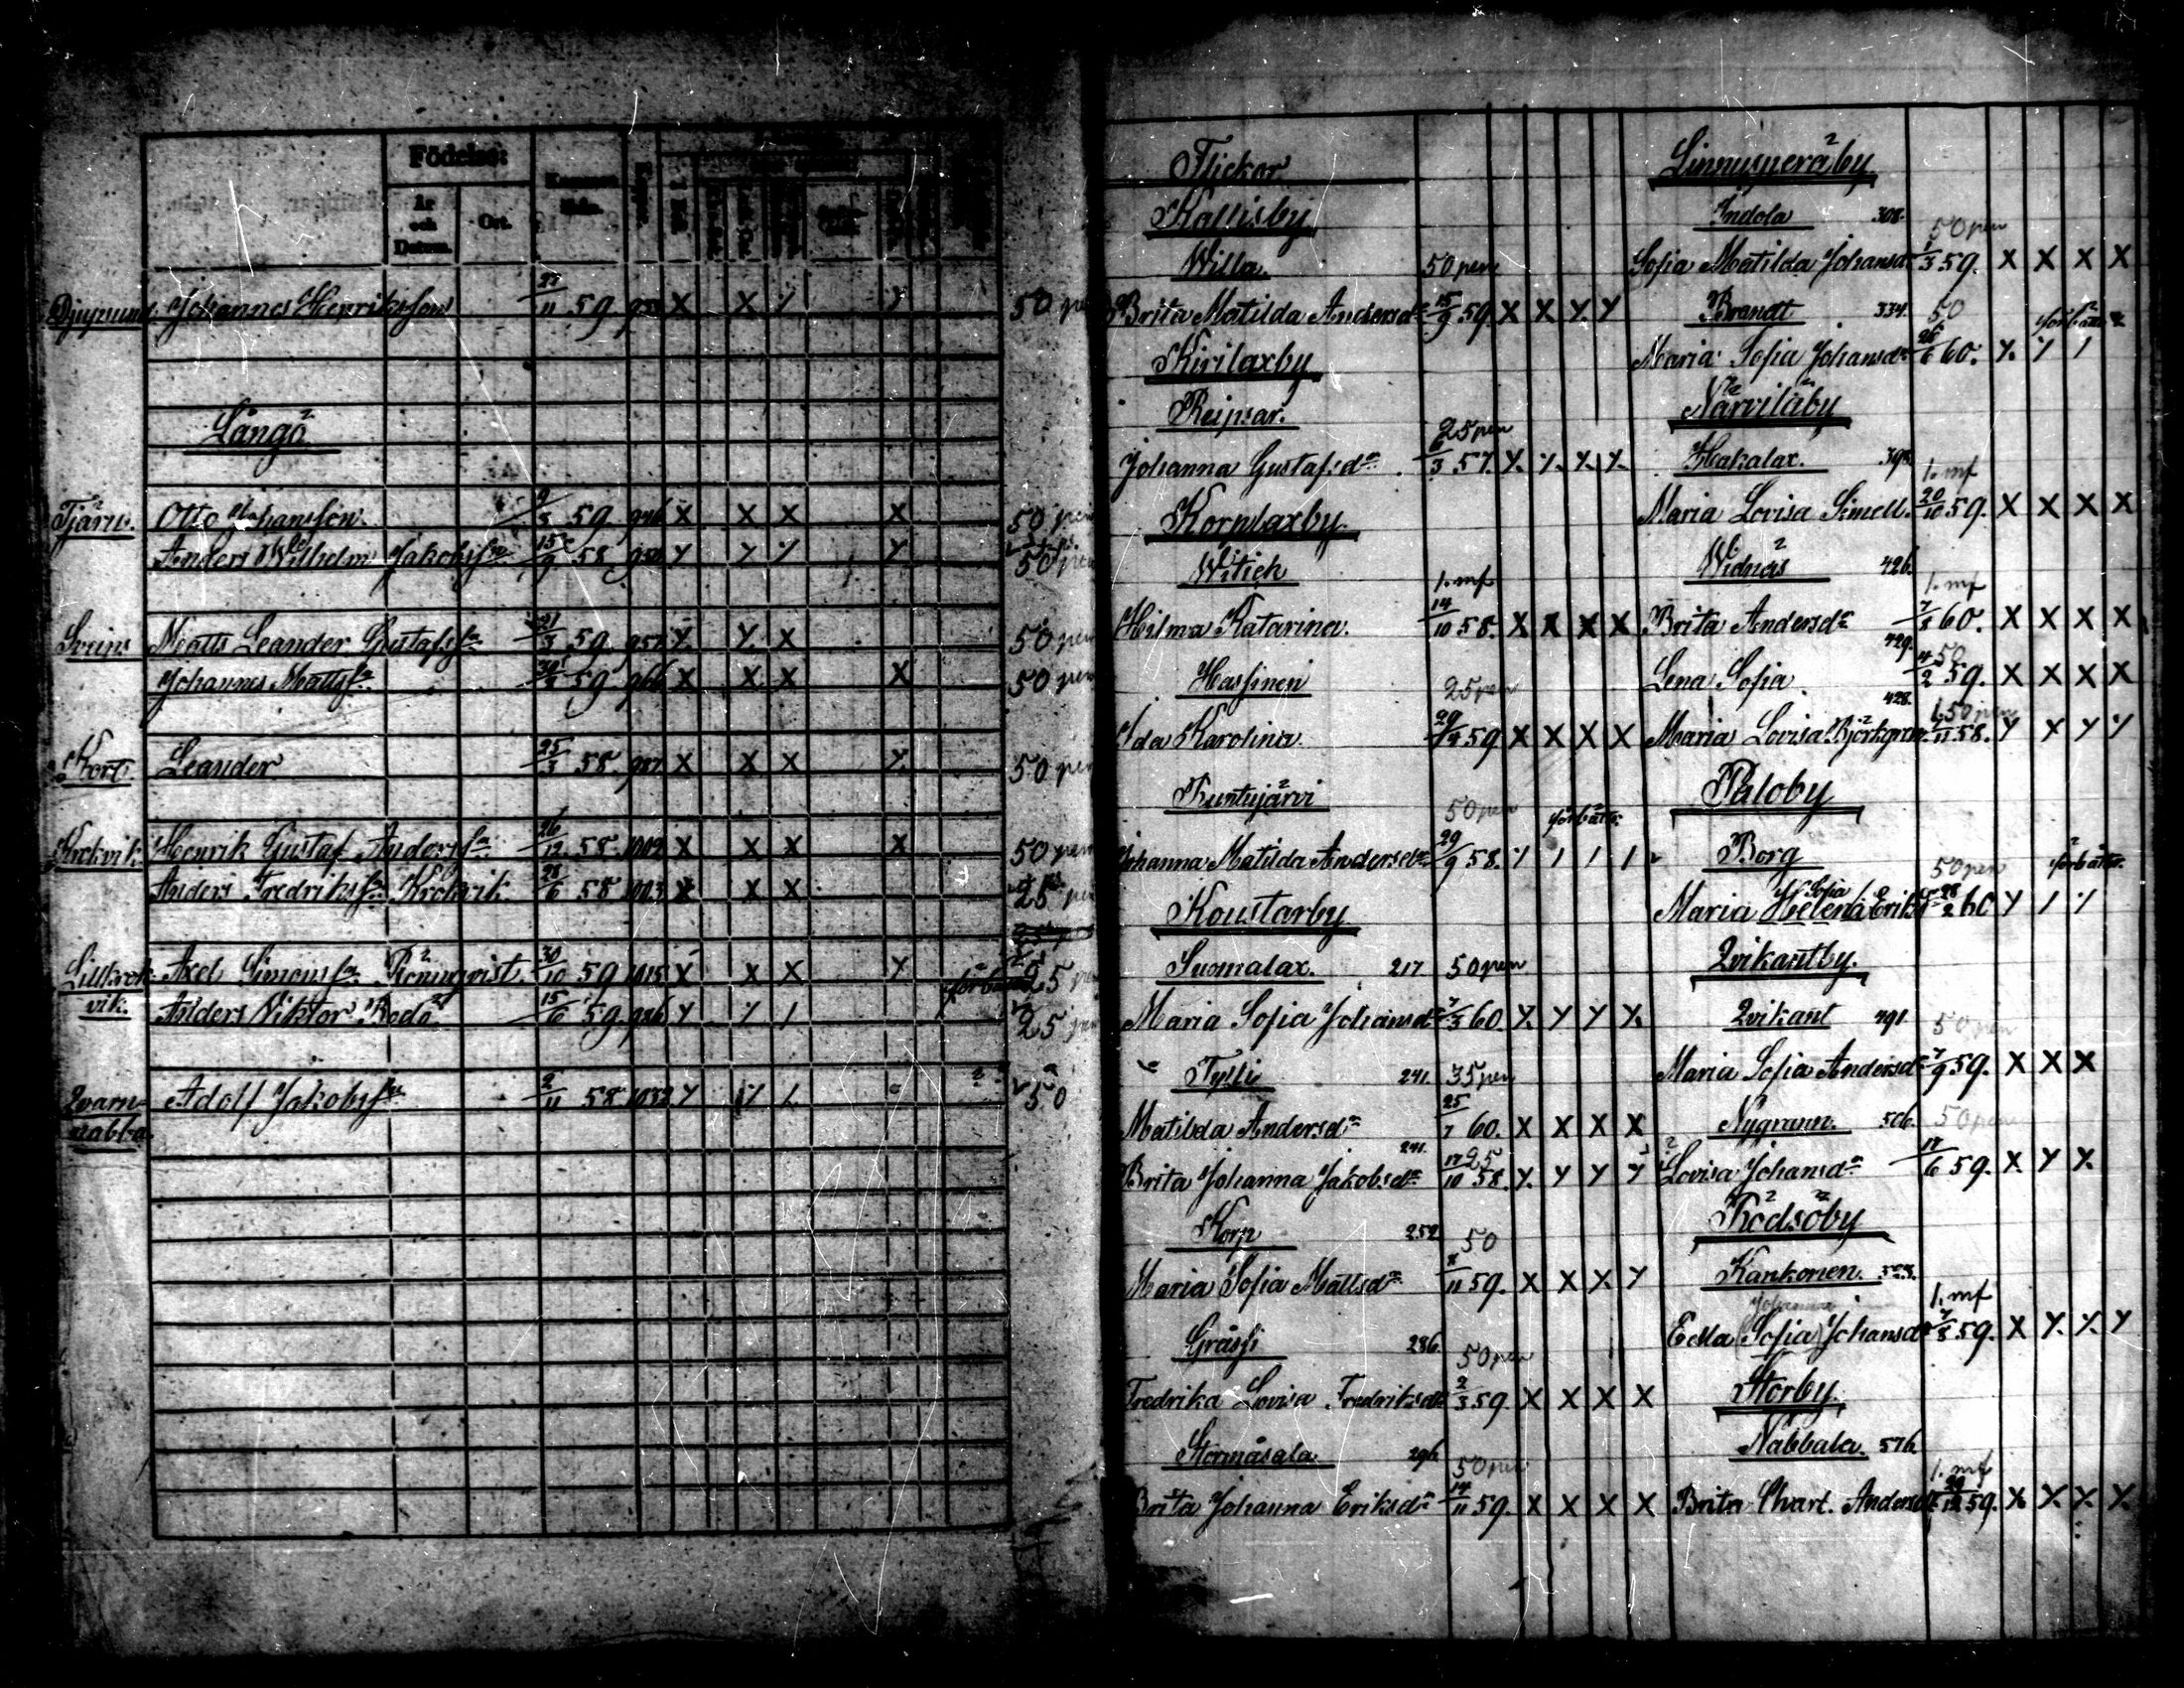 Födelse:
År och Datum.
Ort.
Djupsund. Johannes Henriksson 27/11 59. X X 50 pen
Långö
Tjäru. Otto Johansson. 9/5 59. 946 X X X X 50 pen
Anders Wilhelm Jakobsson 15/9 58. 950 50 pen
Sveins Matts Leander Gustafsson 21/3 59. 957 50 pen
Johannes Mattsson 30/3 59. 966 X X X X 50 pen
Kort. Leander 25/3 58. 987 X X X 50 pen
Krokvik. Henrik Gustaf Andersson 26/12 58. 1009 X X X X 50 pen
Anders Fredriksson Krokvik. 28/6 58 1003 X X X 25 pen
Lillkrok vik. Axel Simonsson Rönnqvist. 30/10 59 1015 X X X 25
Anders Viktor Redö 15/6 59. 986 25
Qvarn nabba. Adolf Jakobsson 2/11 58. 1032 50
Flickor
Kallisby
Willa. 50 pen
Brita Matilda Andersdr 15/9 59. X X Y Y
Kirilaxby
Reipsar. 25 pen
Johanna Gustafsdr 6/3 57.
Kornlaxby.
Witick 1. mf
Hilma Katarina. 14/10 58. X X X X
Hassinen 25 pen
Ida Karolina. 59 X X X X
Runtujärvi 50 pen förbättr.
Johanna Matilda Andersdr 29/9 58.
Koustarby
Suomalax. 217 50 pen
Maria Sofia Johansdr 7/3 60. Y. Y Y Y.
Tylli 241. 35 pen
Matilda Andersdr 25/7 60. X X X X
241. 25
Brita Johanna Jakobsdr 17/10 58. Y. Y Y Y
Korp 252 50
Maria Sofia Mattsdr 8/11 59. X X X Y
Gräsfi 286. 50 pen
Fredrika Lovisa Fredriksdr 2/3 59 X X X X
Stormåsala 296. 50 pen
Brita Johanna Eriksdr 14/11 59. X X X X
Linnusperäby
Indola 308. 50 pen
Sofia Matilda Johansdr 1/3 59. X X X X
Brandt 334. 50 förbättr.
Maria Sofia Johansdr 26/6 60.
Närviläby
Hakalax. 393 1. mf
Maria Lovisa Simell. 20/10 59. X X X X
Widnäs 426. 1. mf
Brita Andersdr 7/8 60. X X X X
429. 50
Lena Sofia 4/2 59. X X X X
428. 1,50 pen
Maria Lovisa Björkgren. 58. Y X Y Y
Paloby
Borg 50 pen förbättr.
Sofia
Maria Helena Eriksdr 28/2 60
Qvikantby.
Qvikant 491. 50 pen
Maria Sofia Andersdr 7/9 59. X X X
Nygrann. 506. 50 pen
Lovisa Johansdr 17/6 59. X Y X.
Rödsöby
Kankonen. 1. mf
Johanna
Edla (Sofia) Johansdr 7/8 59. X Y. Y. Y
Storby.
Nabbala. 576. 1. mf
Brita Charl. Andersdr 59. X. Y. Y. Y.